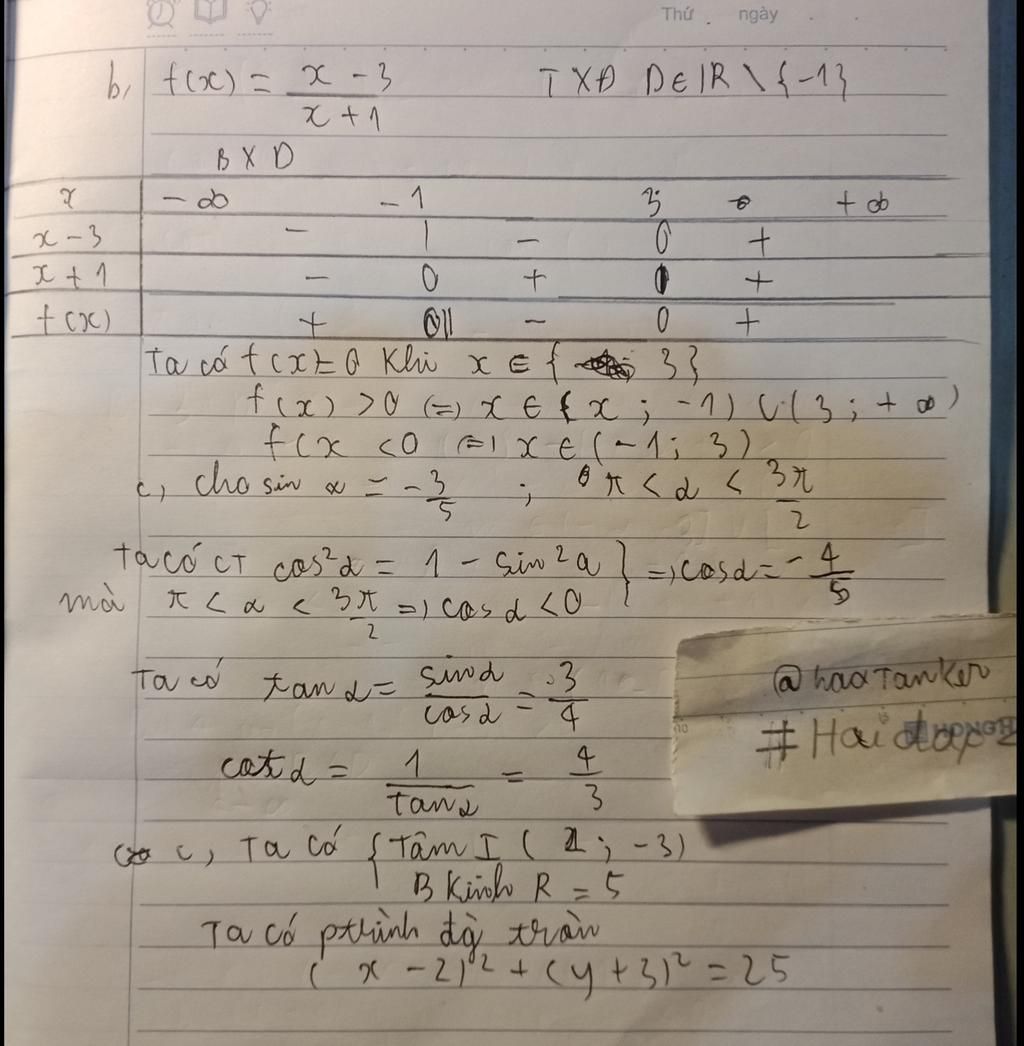 Thứ . ngày . .
b, f(x) = x - 3 / x + 1 TXĐ D ∈ IR \ {-1}
B X D
x -∞ -1 3 +∞
x - 3 - | - 0 +
x + 1 - 0 + | +
f(x) + || - 0 +
Ta có f(x) = 0 Khi x ∈ { 3}
f(x) > 0 (=) x ∈ (x ; -1) ∪ (3 ; + ∞)
f(x < 0 (=) x ∈ (-1 ; 3)
c, cho sin α = -3/5 ; π < α < 3π/2
Ta có CT cos²α = 1 - sin²a } =) cosα = -4/5
mà π < α < 3π/2 =) cos α < 0
Ta có tan α = sinα/cosα = 3/4
@haoTanKer
#Hoidap2
cot α = 1/tanα = 4/3
c, Ta có { Tâm I ( 2 ; -3)
B Kính R = 5
Ta có ptrình đg tròn
( x - 2)² + (y + 3)² = 25